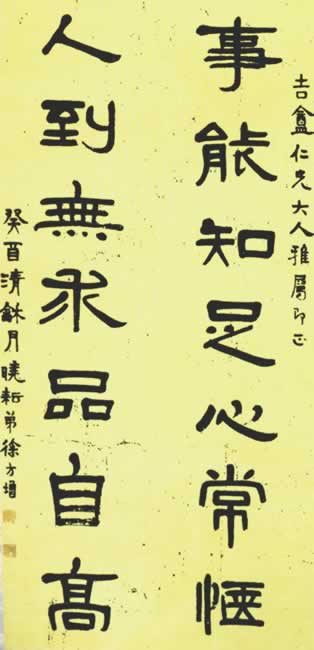 吉盦仁兄大人雅屬即正
事能知足心常愜
人到無求品自高
癸酉清龢月曉耘弟徐方增